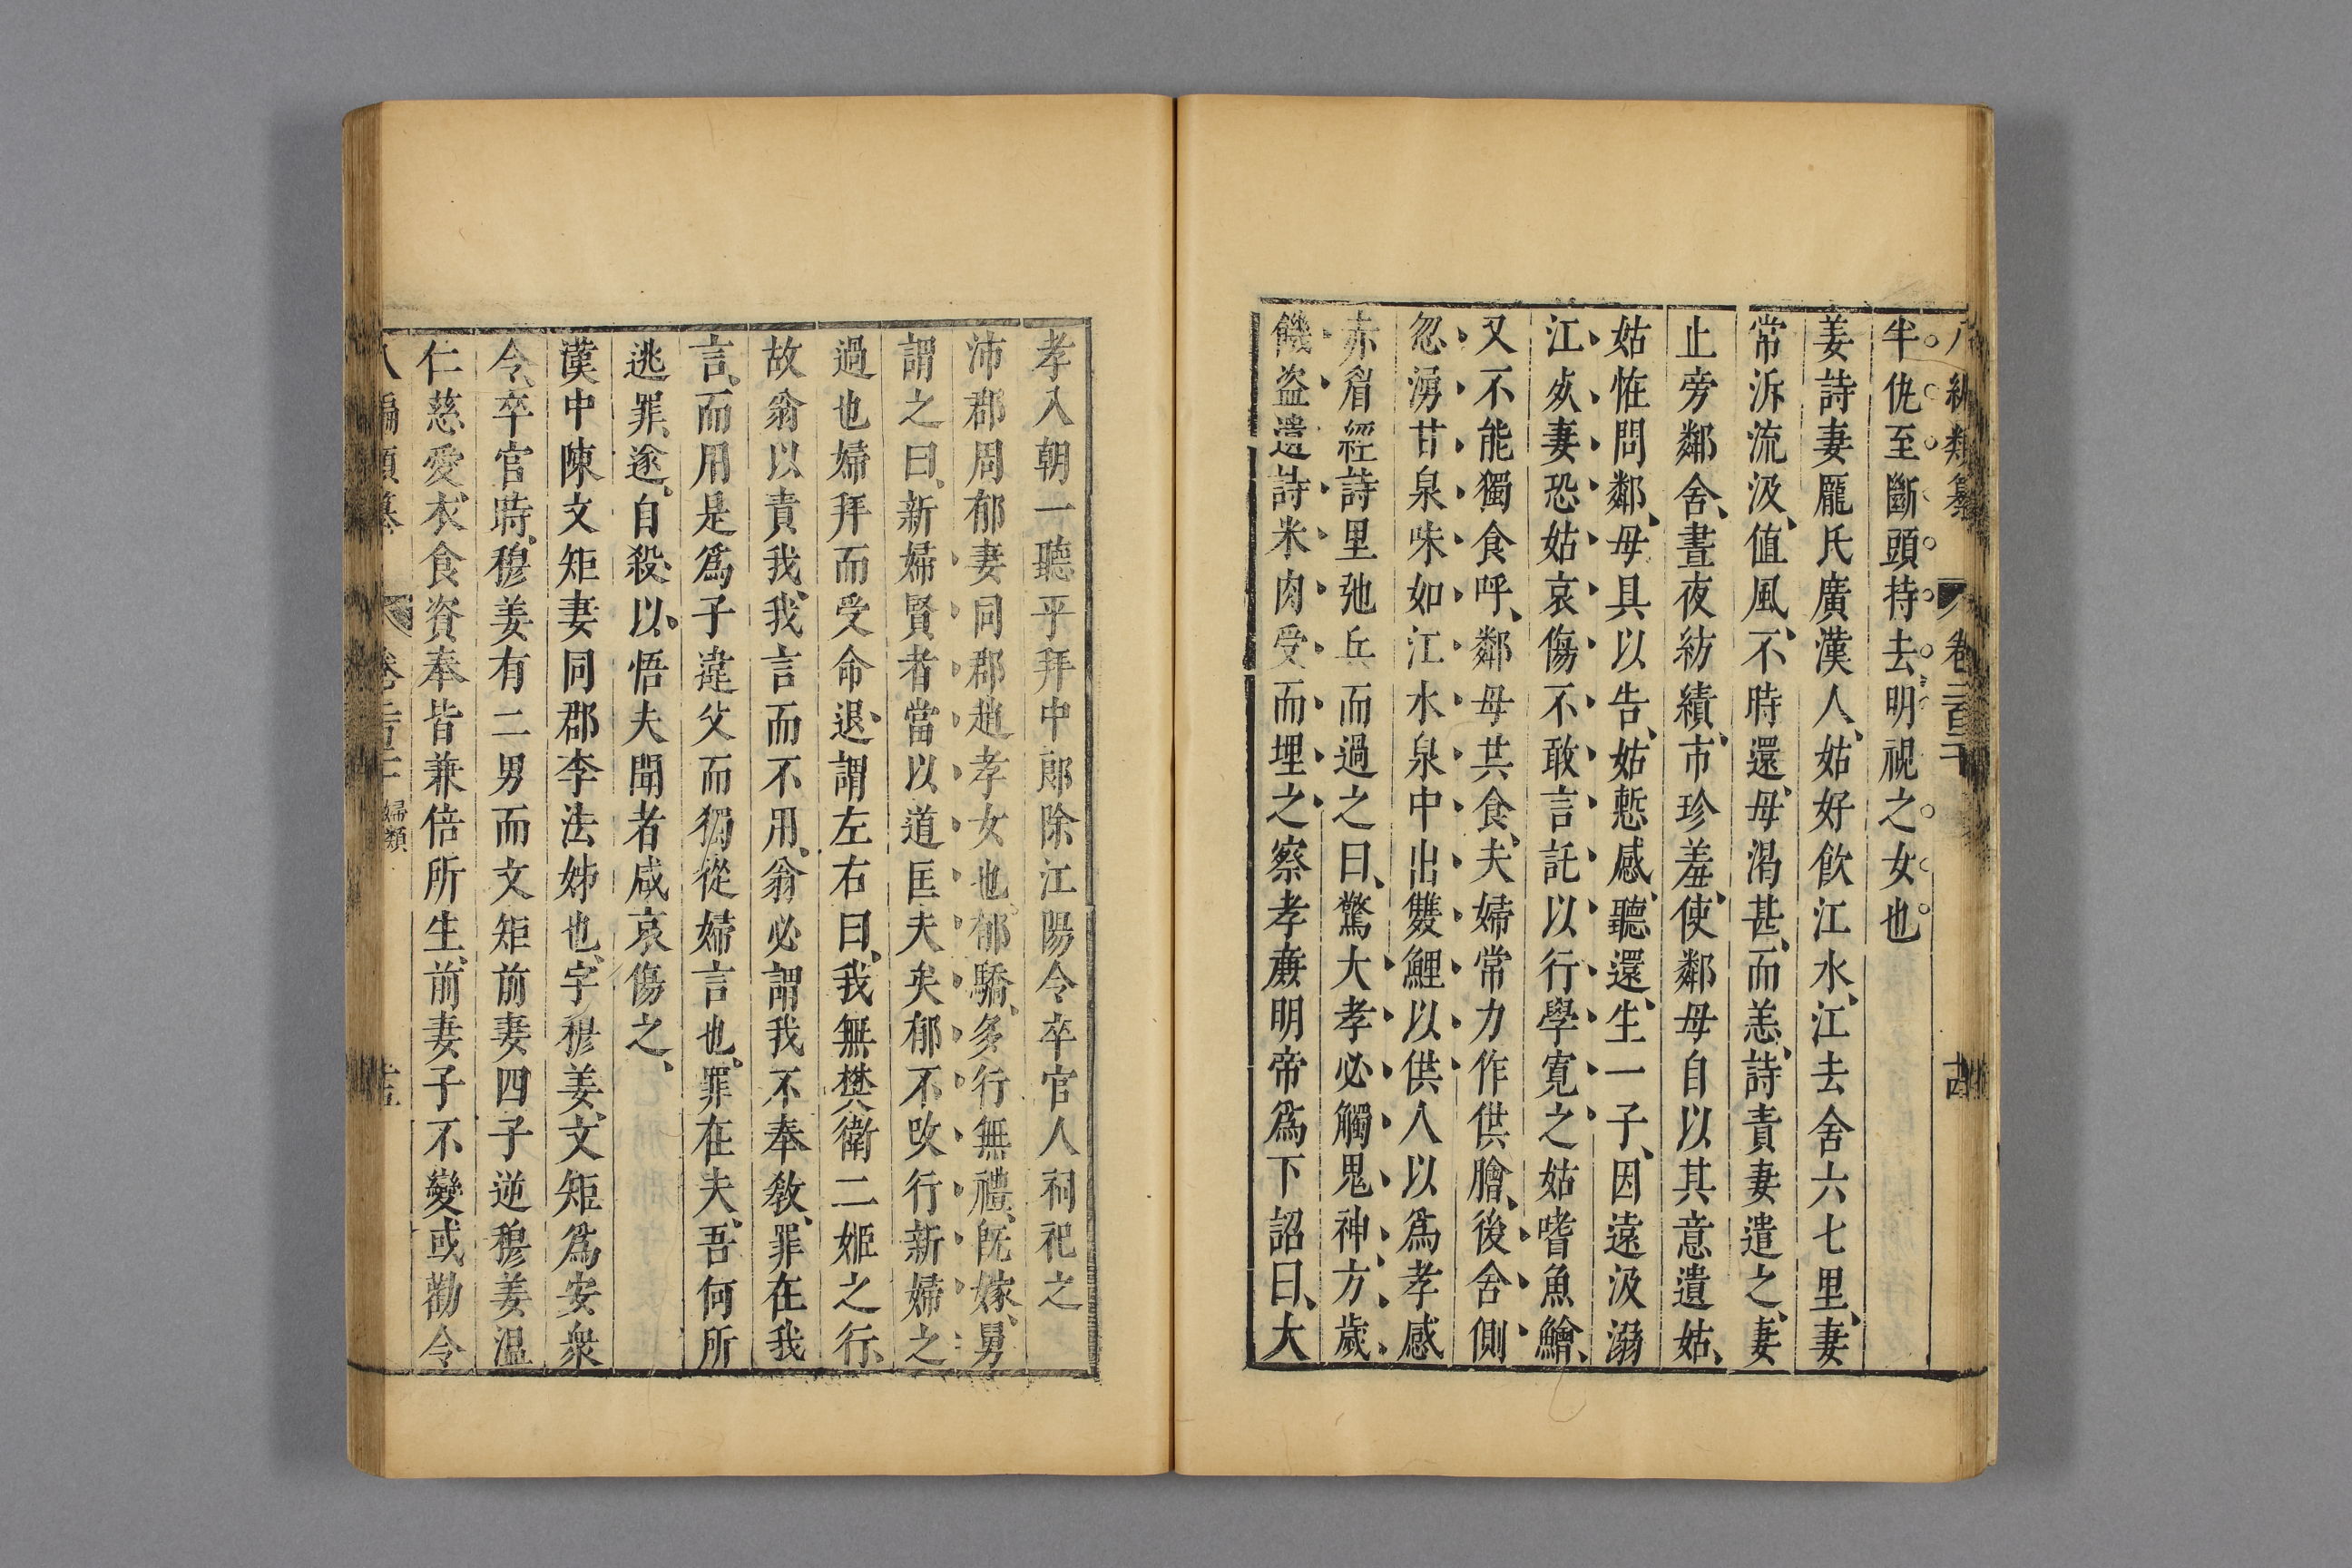 八編類纂 卷二百二十 古
半仇至斷頭持去明視之女也
姜詩妻龎氏廣漢人、姑好飲江水、江去舍六七里、妻
常泝流汲、值風、不時還、母渴甚、而恙、詩責妻遣之、妻
止旁鄰舍、晝夜紡績、市珍羞、使鄰母自以其意遺姑、
姑恠問鄰、母具以告、姑慙感、聽還、生一子、因遠汲溺
江、夾妻恐姑哀傷不敢言託以行學寬之姑嗜魚鱠、
又不能獨食呼、鄰母共食、夫婦常力作供膾、後舍側
忽湧甘泉味如江水泉中出雙鯉以供人以爲孝感
赤眉經詩里弛兵而過之曰、驚大孝必觸鬼神、方歲、
饑盗遺詩米肉受而埋之察孝亷明帝爲下詔曰、大
孝入朝一聽平拜中郎除江陽令卒官人祠祀之
沛郡周郁妻同郡趙孝女也、郁驕、多行無禮、旣嫁、舅
謂之曰、新婦賢者當以道匡夫矣郁不改行新婦之
過也婦拜而受命退、謂左右曰、我無樊衛二姬之行、
故翁以責我、我言而不用、翁必謂我不奉敎、罪在我
言、而用是爲子違父而獨從婦言也、罪在夫、吾何所
逃罪、遂、自殺、以、悟夫聞者咸哀傷之、
漢中陳文矩妻同郡李法姊也、字穆姜、文矩爲安衆
令、卒官時、穆姜有二男而文矩前妻四子逆穆姜溫
仁慈愛、衣食資奉皆兼倍所生、前妻子不變或勸令
八編類纂 卷二百二十 婦類